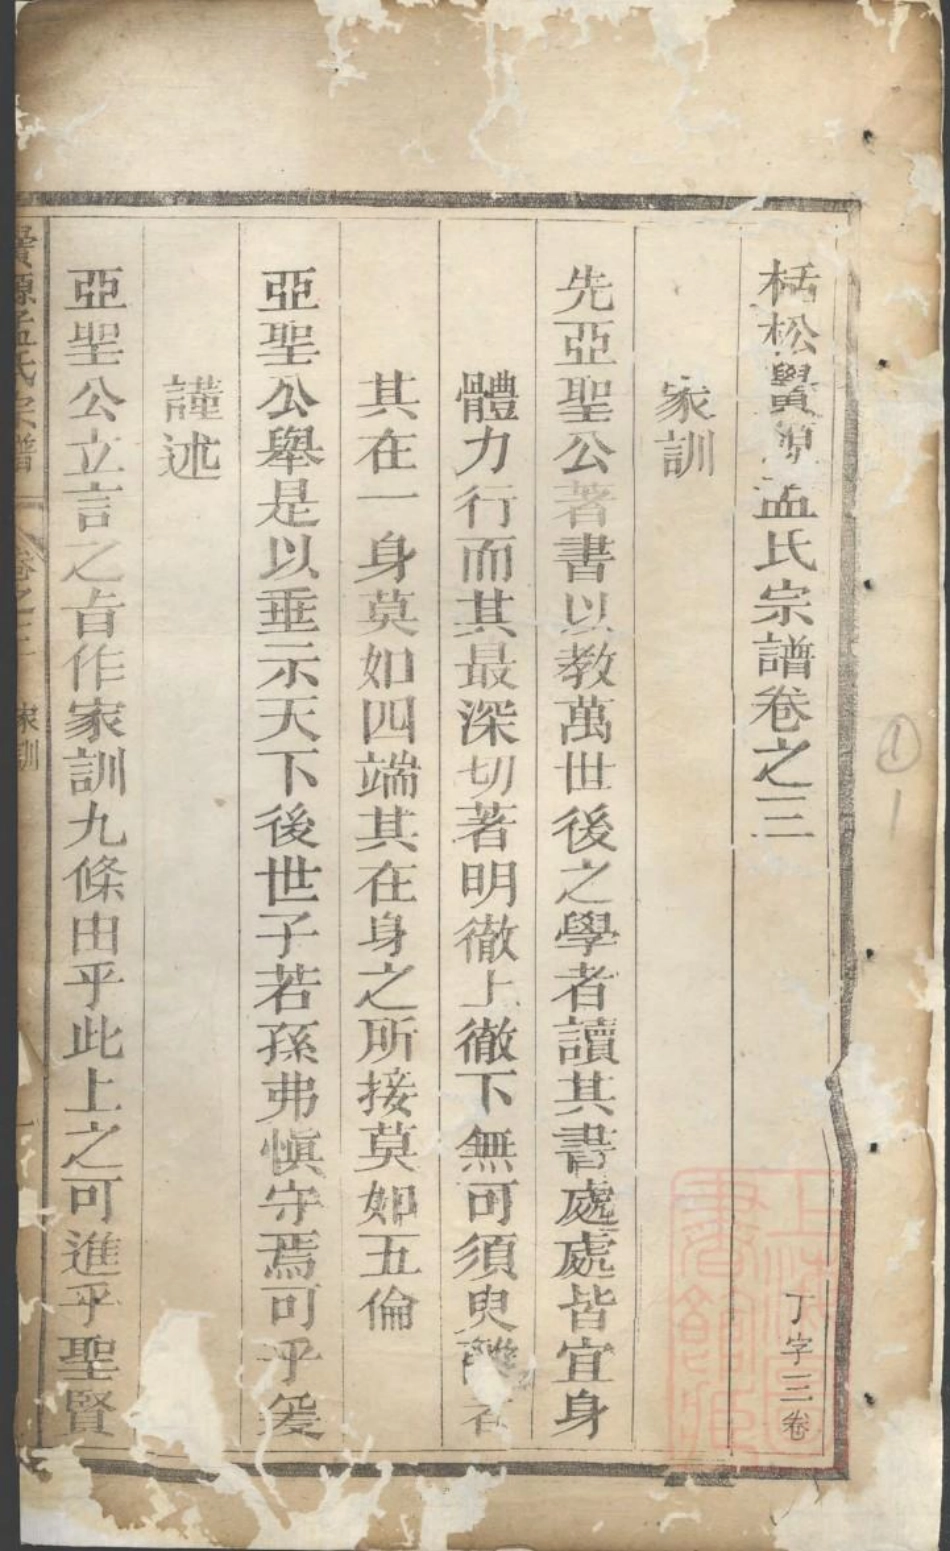 栝松黌源孟氏宗譜卷之三
丁字三卷
家訓
先亞聖公著書以教萬世後之學者讀其書處處皆宜身
體力行而其最深切著明徹上徹下無可須臾離者
其在一身莫如四端其在身之所接莫如五倫
亞聖公舉是以垂示天下後世子若孫弗慎守焉可乎爰
謹述
亞聖公立言之旨作家訓九條由乎此上之可進乎聖賢
黌源孟氏宗譜 卷之三 家訓 一
①
1